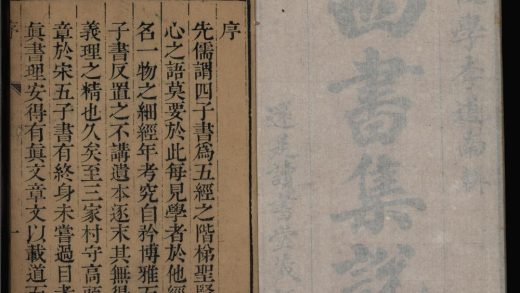 學李道南輯
四書集說
讀書堂藏
序
先儒謂四子書爲五經之階梯聖賢
心之語莫要於此每見學者於他經
名一物之細經年考究自矜博雅
子書反置之不講遺本逐末其無得
義理之精也久矣至三家村守高頭
章於宋五子書有終身未嘗過目者
眞書理安得有眞文章文以載道
序
一